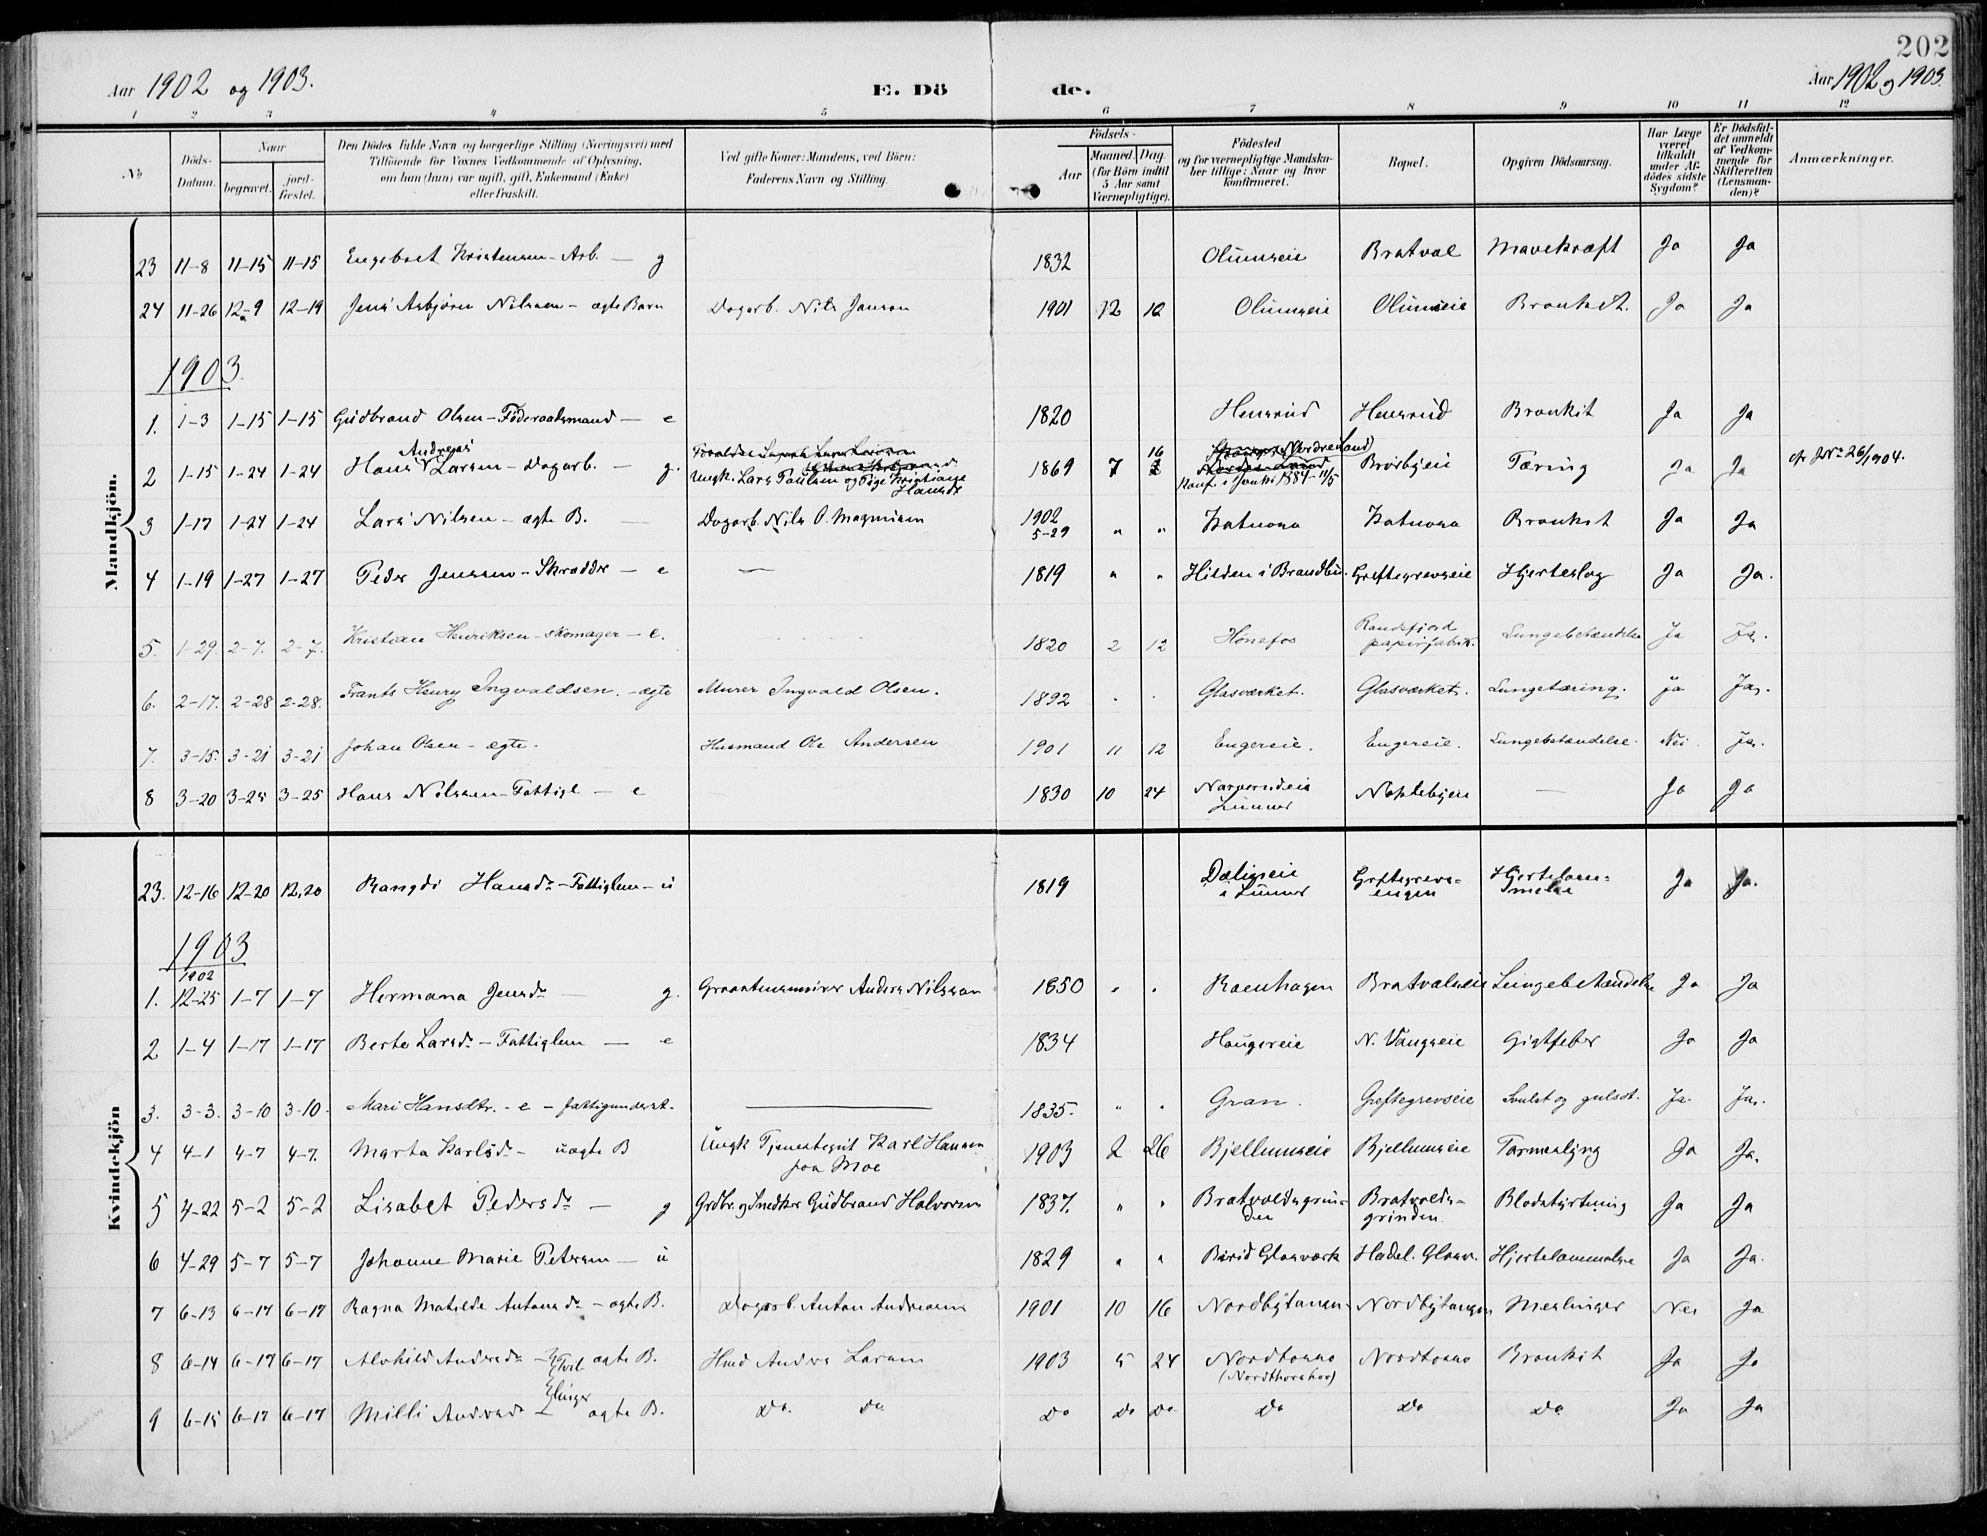 202
Aar 1902 og 1903.
E. Dö
de.
Aar 1902 og 1903.
1 2 3 4 5 6 7 8 9 10 11 12
No
Döds-Datum.
Naar
begravet.
jordfæstet.
Den Dödes fulde Navn og borgerlige Stilling (Næringsvei) med
Tilföiende for Voxnes Vedkommende af Oplysning,
om han (hun) var ugift, gift, Enkemand (Enke)
eller fraskilt.
Ved gifte Koner: Mandens, ved Börn:
Faderens Navn og Stilling.
Födsels-
Aar
Maaned. Dag.
(for Börn indtil
5 Aar samt
Værnepligtige).
Födested
og for værnepligtige Mandskaber tillige: Naar og hvor
konfirmeret.
Bopæl.
Opgiven Dödsaarsag.
Har Læge
været
tilkaldt
under Afdödes sidste
Sygdom?
Er Dödsfaldet anmeldt
af Vedkommende for
Skifteretten
(Lensmanden)?
Anmærkninger.
Mandkjön.
23 11-8 11-15 11-15 Engebret Kristensen - Arb. — g 1832 Olumseie Bratval Mavekræft Ja Ja
24 11-26 12-9 12-19 Jens Asbjörn Nilssen - ægte Barn Dagarb. Nils Jansen 1901 12 12 Olumseie Olumseie Bronkit. Ja Ja
1903.
1. 1-3 1-15 1-15 Gudbrand Olsen - Föderaadsmand — e 1820 Hensrud Hensrud Bronkit Ja Ja
2 1-15 1-24 1-24 Hans Andreas Larsen - Dagarb. — g. Ungk. Lars Paulsen og Pige Kristiane Hansdr 1869 7 16 Nordre Land Konf. i 1884 11/5 Brörbyeie Tæring Ja Ja cfr. J.No 26/1904.
3 1-17 1-24 1-24 Lars Nilsen - ægte B. Dagarb. Nils O. Magnusen 1902 5-29 " " Katnosa Katnosa Bronkit Ja Ja
4 1-19 1-27 1-27 Peder Jenssen - Skrædder — e — 1819 " " Hilden i Brandbu. Greftegrevseie Hjerteslag Ja Ja.
5. 1-29. 2-7. 2-7. Kristian Henriksen - skomager - e. 1820 2 12 Hönefos Randsfjord papirfabrik. Lungebetændelse Ja Ja.
6. 2-17. 2-28 2-28. Frants Henry Ingvaldsen. - ægte Murer Ingvald Olsen. 1892 . . Glasværket. Glasværket. Lungetæring. Ja Ja.
7. 3-15. 3-21 3-21 Johan Olsen - ægte. Husmand Ole Andersen 1901 11 12 Engereie. Engereie. Lungebetændelse. Nei. Ja.
8 3-20 3-25 3-25 Hans Nilssen - Fattigl — e — 1830 10 24 Lunner — Ja Ja
Kvindekjön
23. 12-16 12-20 12,20 Rangdi Hansdr - Fattiglem - u 1819 i Lunner Greftegrevsengen Ja Ja.
1903
1. 1902 12-25 1-7 1-7 Hermana Jensdr — g. Anders Nilssen 1850 " . Raenhagen Bratvalseie Lungebetændelse Ja Ja
2 1-4 1-17 1-17 Berte Larsdr - Fattiglem — e 1834 Haugereie N. Vangseie Gigtfeber Ja Ja
3. 3-3. 3-10 3-10. Mari Hansdtr. - e - fattigunderst. — 1835. " . Gran. Greftegrevseie Svulst og gulsot. Ja. Ja.
4 4-1 4-7 4-7. Marta Karlsdr - uægte B Ungk Tjenestegut Karl Hansen fra Moe 1903 2 26 Bjellumseie Bjellumseie Tarmslyng Ja Ja.
5 4-22 5-2 5-2 Lisabet Pedersdr — g Grdbr. og Snedker Gudbrand Halvorsen 1837. " . Bratvoldsgrinden Bratvoldsgrinden. Blodstyrtning Ja Ja
6 4-29 5-7 5-7 Johanne Marie Petersen — u 1829 " " Birid Glasværk Hadel. Glasv. Hjertelammelse Ja Ja.
7 6-13 6-17 6-17 Ragna Matilde Antonsdr - ægte B. Dagarb. Anton Andreasen 1901 10 16 Nordbytangen Nordbytangen Meslinger Nei Ja
8 6-14 6-17 6-17 Alvhild Andersdr - Tvil ægte B. Hmd Anders Larsen 1903 5 24 Nordtosno (Nordthorshov) Nordtosno Bronkit Ja Ja
9 6-15 6-17 6-17 Milli Andersdr - linger ægte B. Do. Do Do Do Do Do Do Do Ja Ja